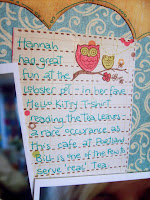 Hannah
had great
fun at the
Lobster pot - in her fave
Hello Kitty T-shirt
reading the tea leaves -
a rare occurance as
this cafe at Portland
Bill is one of the few to
serve 'real' Tea.